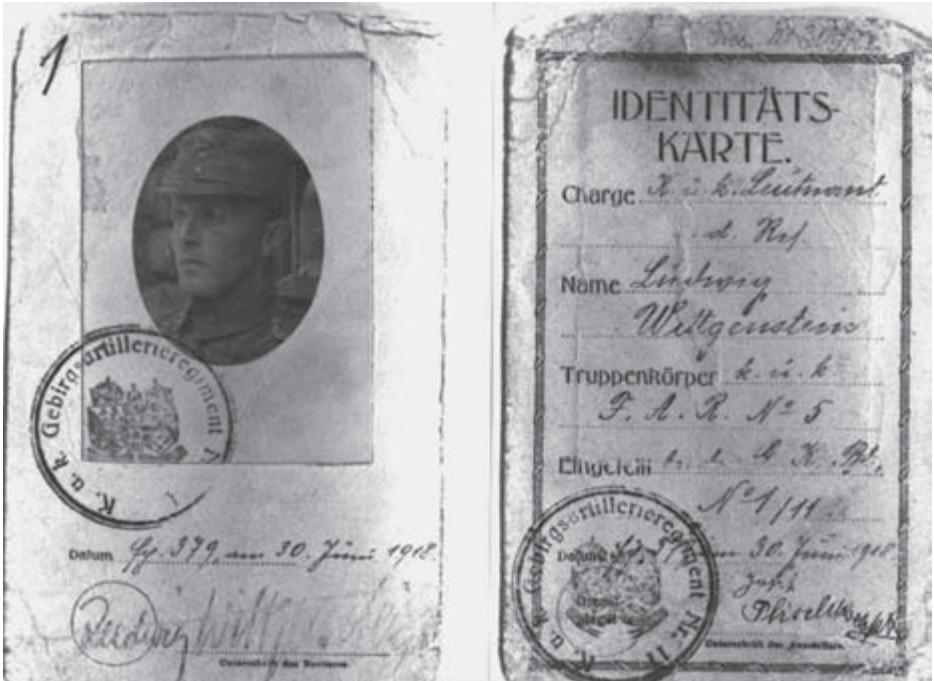 1
K. u. k. Gebirgsartillerieregiment Nr.
Datum Fp. 379, am 30. Juni 1918.
Ludwig Wittgenstein
Unterschrift des Besitzers.
IDENTITÄTS-
KARTE.
Charge K. u. k. Leutnant
d. Res.
Name Ludwig
Wittgenstein
Truppenkörper k. u. k
F. A. R. Nº 5
Eingeteilt K.
Nº 1/11
K. u. k. Gebirgsartillerieregiment Nr. 11
Datum am 30. Juni 1918.
Unterschrift des Ausstellers.